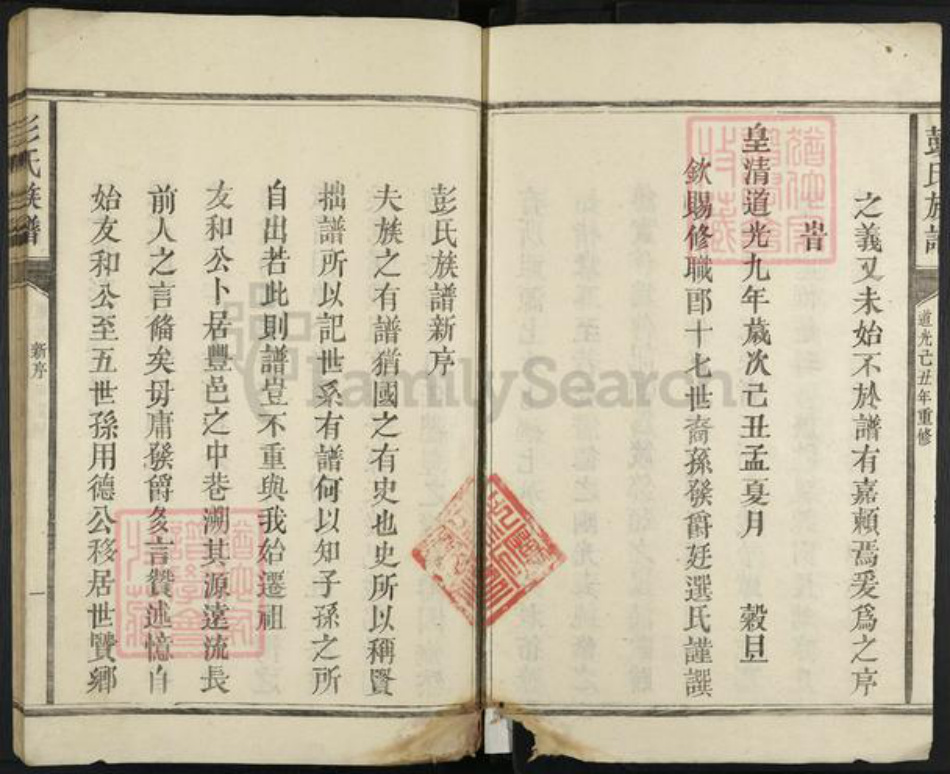 彭氏族譜
道光己丑年重修
之義又未始不於譜有嘉賴焉爰爲之序
旹
皇清道光九年歲次己丑孟夏月 穀旦
欽賜修職郎十七世裔孫發爵廷選氏謹譔
彭氏族譜新序
夫族之有譜猶國之有史也史所以稱賢
拙譜所以記世系有譜何以知子孫之所
自出若此則譜豈不重與我始遷祖
友和公卜居豐邑之中巷溯其源遠流長
前人之言偹矣毋庸發爵多言贊述憶自
始友和公至五世孫用德公移居世賢鄉
彭氏族譜
新序
一
FamilySearch